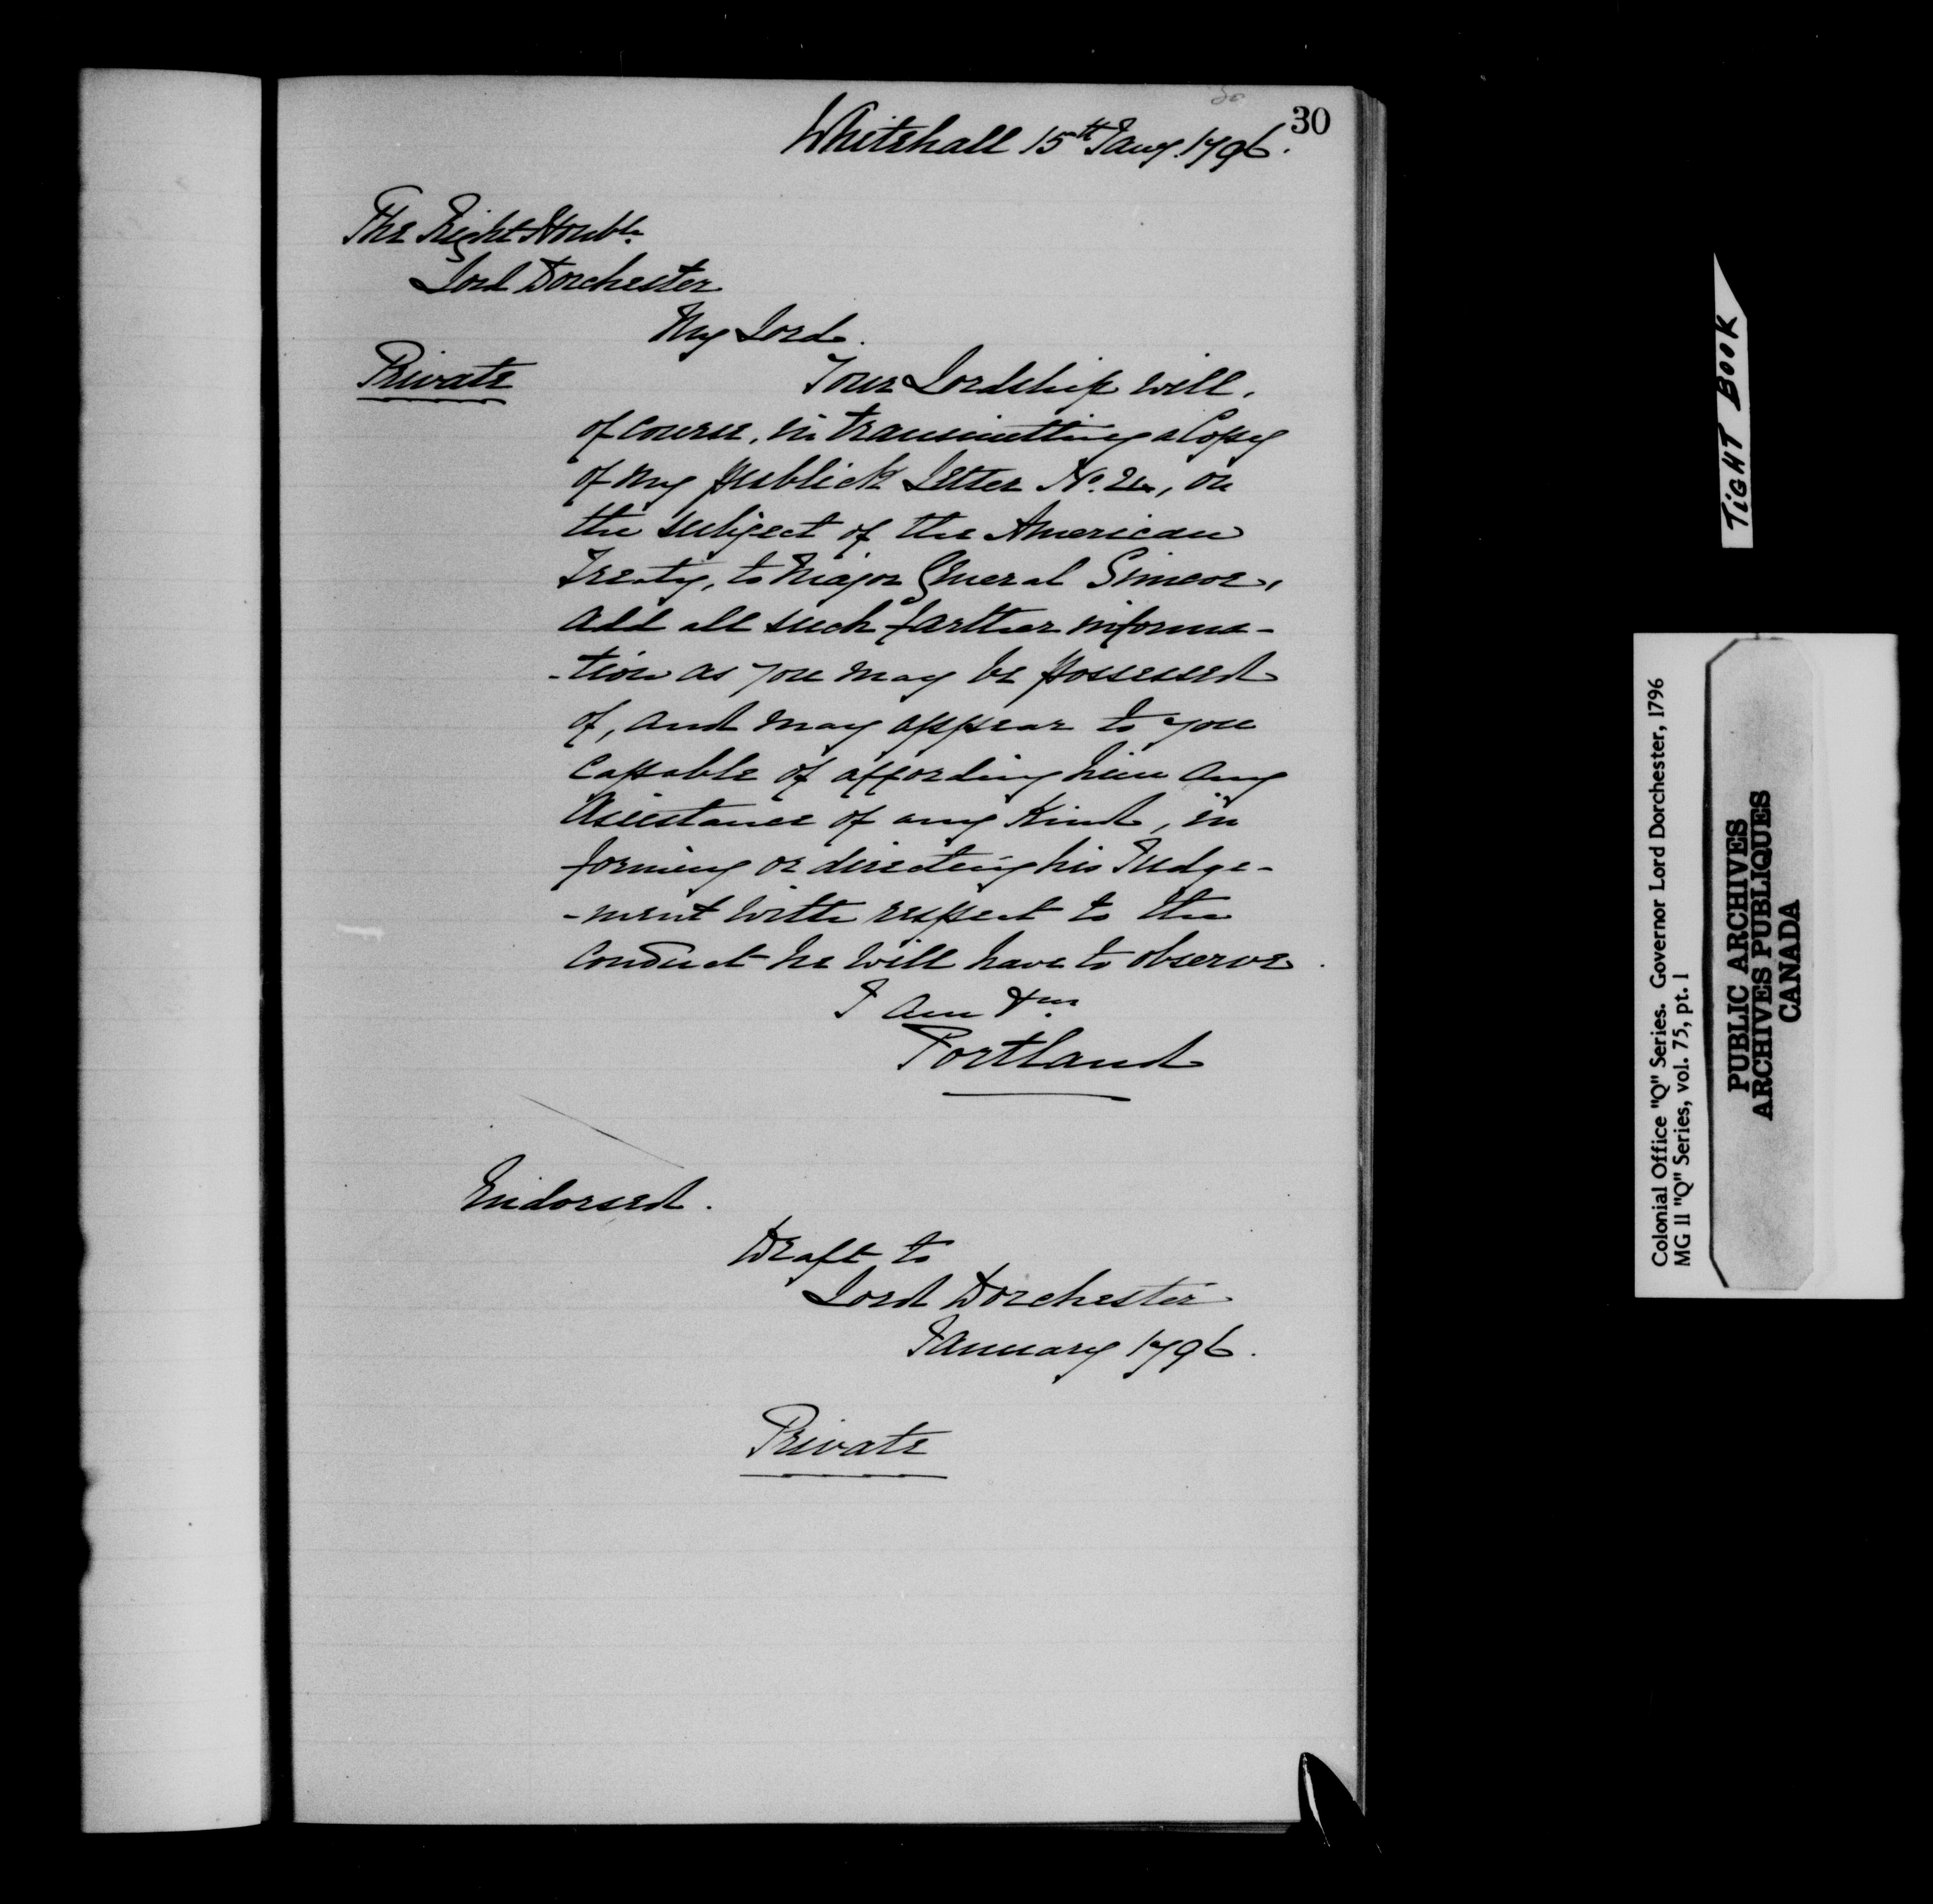 30
Whitehall 15th Jany. 1796.
The Right Honble.
Lord Dorchester
My Lord.
Private
Your Lordship will,
of course, in transmitting a Copy
of my publick Letter No. , on
the subject of the American
Treaty, to Major General Simcoe,
add all such farther informa-
-tion as you may be possessed
of, and may appear to you
capable of affording him any
Assistance of any Kind, in
forming or directing his Judge-
-ment with respect to the
conduct he will have to observe.
I am &ca.
Portland
Endorsed.
Draft to
Lord Dorchester
January 1796.
Private
TIGHT BOOK
Colonial Office "Q" Series. Governor Lord Dorchester, 1796
MG 11 "Q" Series, vol. 75, pt. 1
PUBLIC ARCHIVES
ARCHIVES PUBLIQUES
CANADA